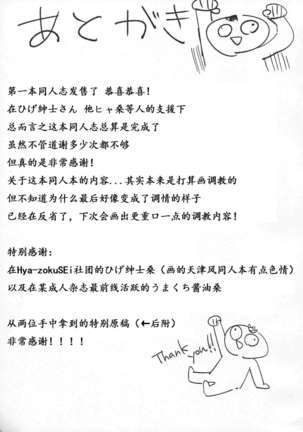 あとがき
第一本同人志发售了 恭喜恭喜！
在ひげ紳士さん 他ヒャ桑等人的支援下
总而言之这本同人志总算是完成了
虽然不管道谢多少次都不够
但真的是非常感谢！
关于这本同人本的内容...其实本来是打算画调教的
但不知道为什么最后好像变成了调情的样子
已经在反省了，下次会画出更重口一点的调教内容！
特别感谢：
在Hya-zokuSEi社团的ひげ紳士桑（画的天津风同人本有点色情）
以及在某成人杂志最前线活跃的うまくち醤油桑
从两位手中拿到的特别原稿（←后附）
非常感谢！！！！
Thank you!!